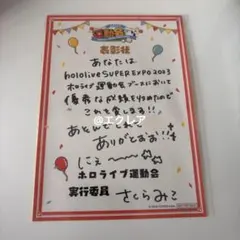 表彰状
あなたは
hololive SUPER EXPO 2023
ホロライブ運動会ブースにおいて
優秀な成績をおさめたので
これを賞します!!
あそんでくれて
ありがとにぇ!!
@エクレア
にぇ〜〜☆☆
ホロライブ運動会
実行委員 さくらみこ